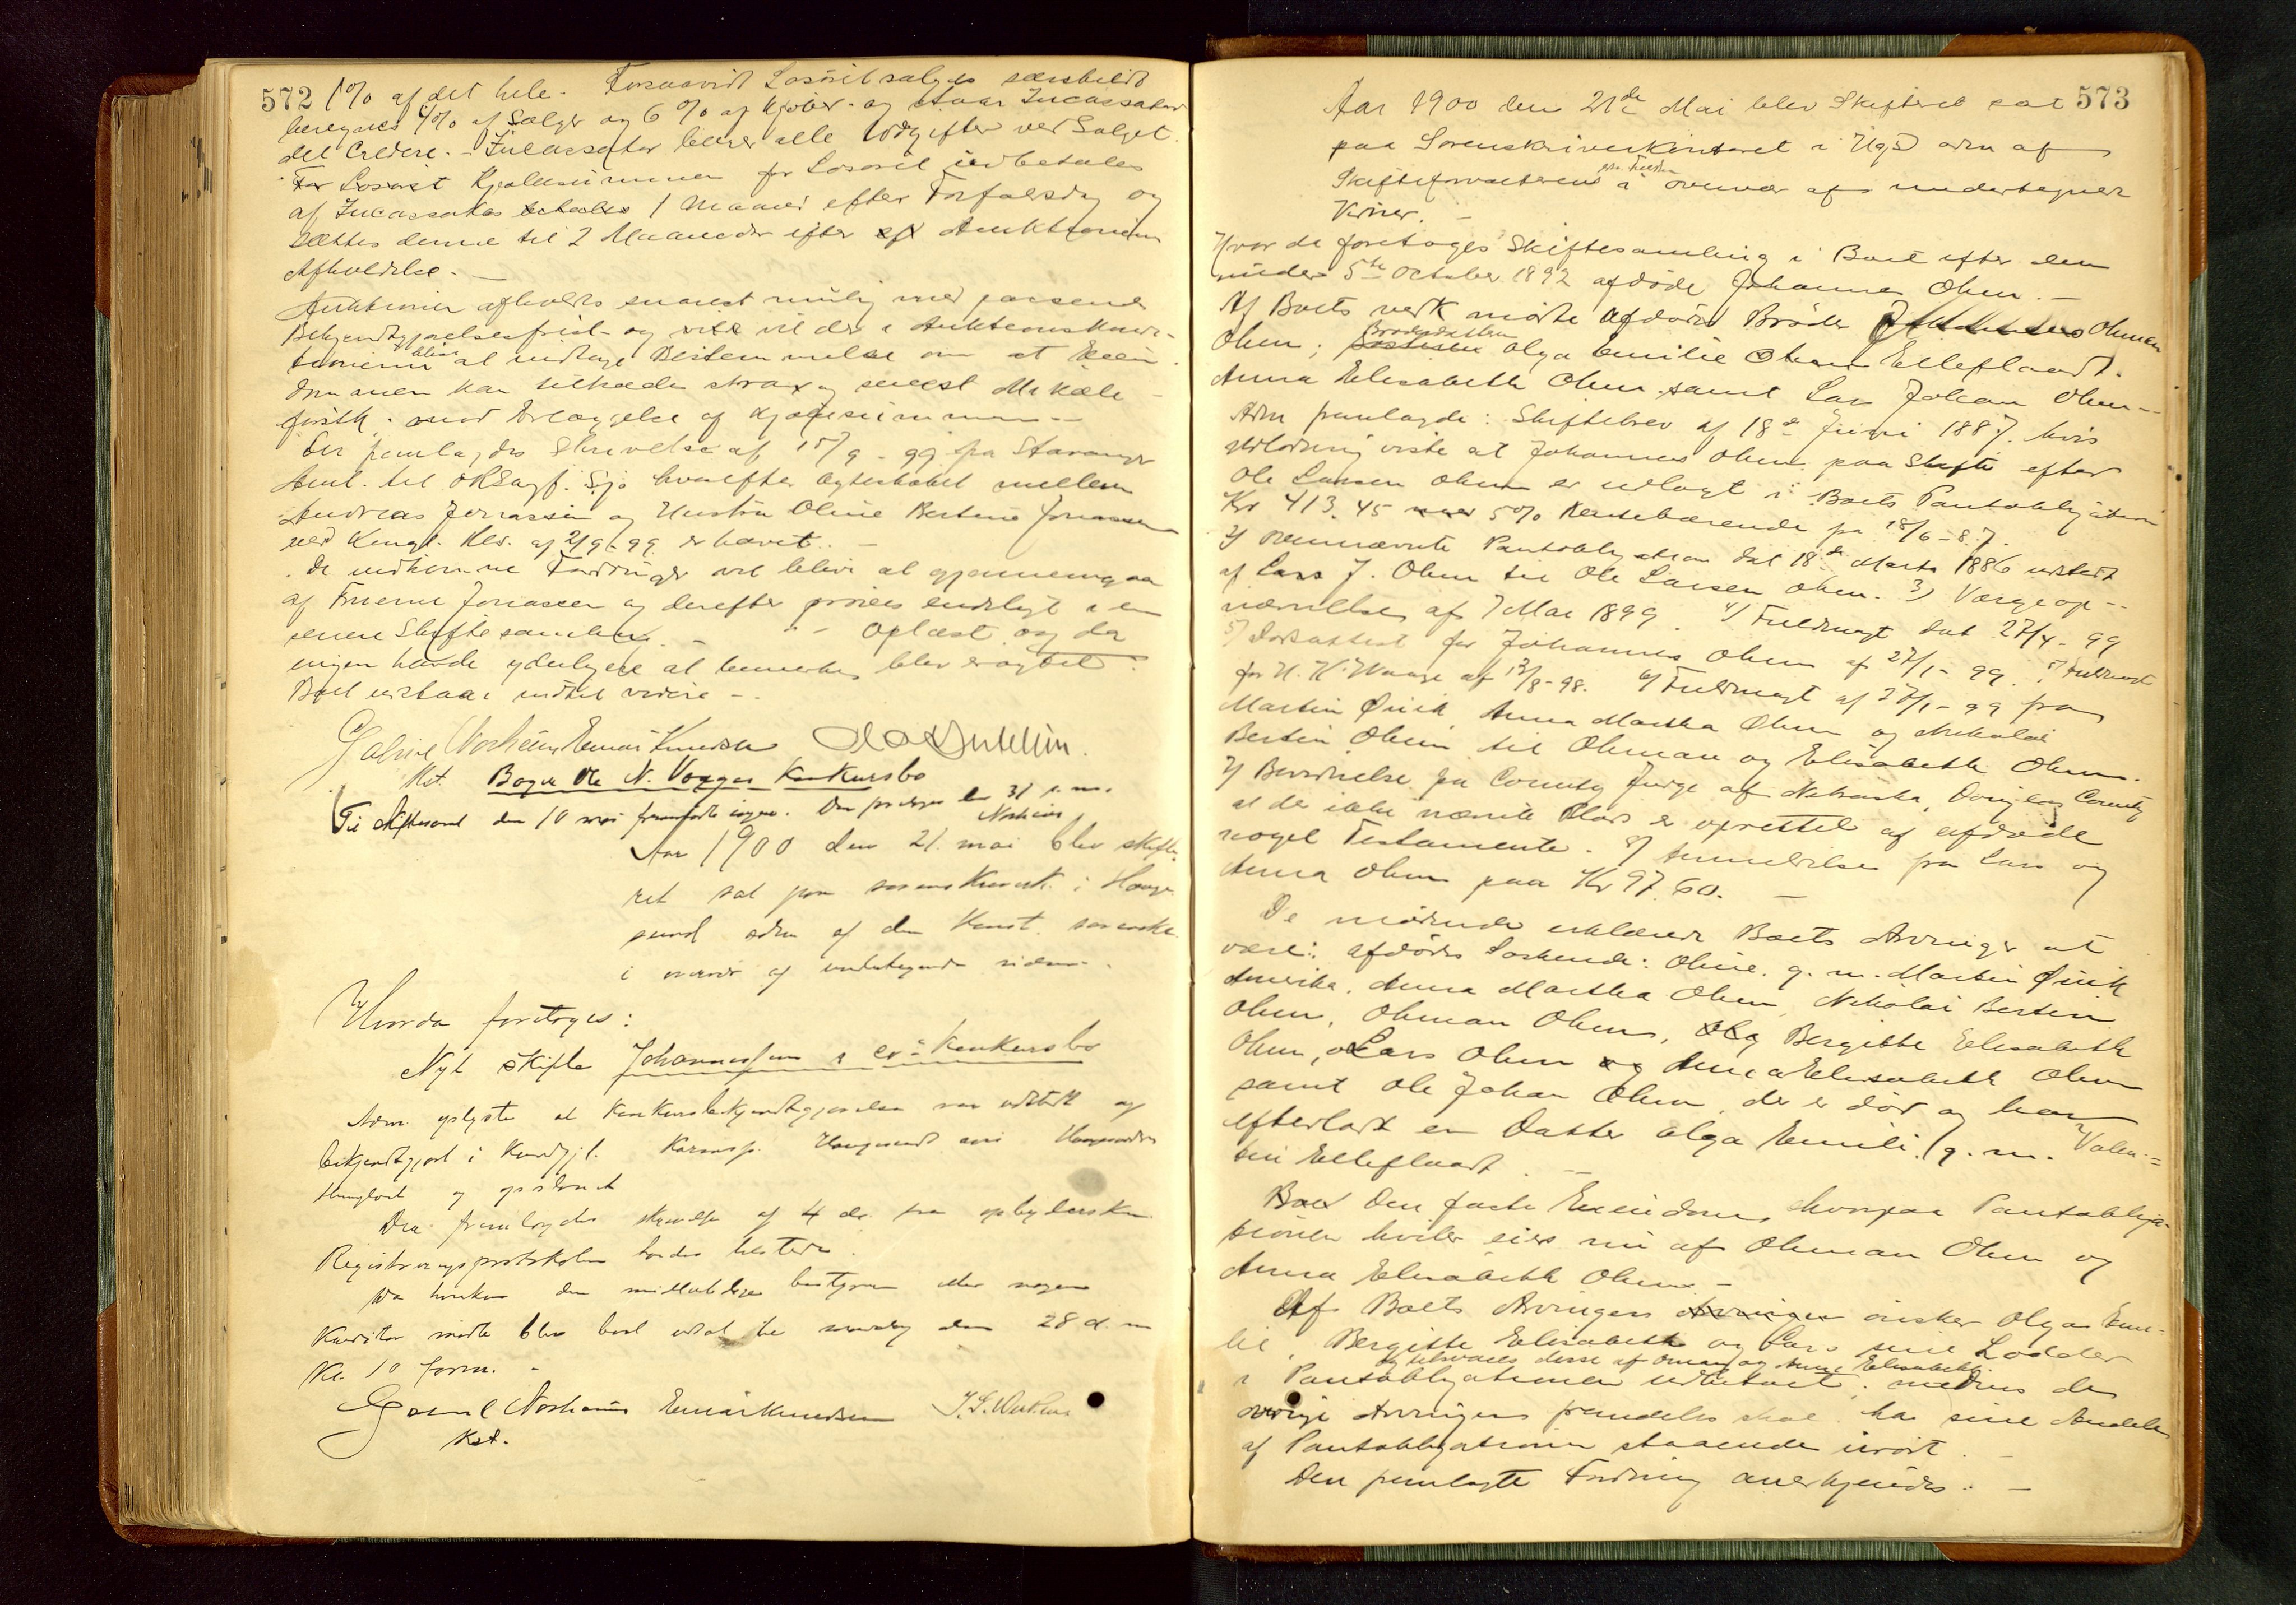 572
1% af det hele. Forsaavidt Løsøret sælges særskildt
beregnes 4% af Sælger og 6% af Kjøber - og staar Incassator
del Credere. - Incassator bærer alle Udgifter ved Salget.
For Løsøret Kjøbesummen for Løsøret indbetales
af Incassator betales 1 Maaned efter Forfaldsdag og
sættes denne til 2 Maaneder efter Auktionens
Afholdelse. -
Auktionen afholdes snarest mulig med passende
Bekjendtgjørelsesfrist - og vil der i Auktionskondi-
tionerne blive at indtage Bestemmelse om at Eien-
dommen kan tiltrædes strax og senest
mod Erlæggelse af Kjøbesummen -
Der fremlagdes Skrivelse af 15/9 - 99 fra Stavanger
Amt til hvorefter Ægteskabet mellem
Andreas Jonassen og Hustru Oline Bertine Jonassen
ved Kongl. Res. af 2/9 - 99 er hævet. -
De indkomne Fordringer vil blive at gjennemgaa
af Fruerne Jonassen og derefter prøves endeligt i en
senere Skiftesamling. - Oplæst og da
ingen havde yderligere at bemerke blev
Boet udsat indtil videre -
Gabriel Norheim Einar Knudsen
Kst. Bager Ole N. Vogges Konkursbo
Til Skiftesaml. den 10 mai fremførte ingen. Den 31 s.m.
Norheim
Aar 1900 den 21. mai blev skifte-
ret sat paa sorenskriverk. i Hauge-
sund adm af den Konst. sorenskr.
i overvær af undertegnede vidner.
Hvorda foretoges:
Nyt Skifte Johannessen & co's Konkursbo
Adm. oplyste at Konkursbekjendtgjørelsen var udstedt og
bekjendtgjort i Kundgjl. Karmsp. Haugesund avis Haugesunderen
thinglæst og opslaaet
Der fremlagdes skrivelse af 4 ds. fra
Registreringsprotokollen
Da hverken den midlertidige bestyrer eller nogen
Kreditor mødte blev boet udsat til mandag den 28 d. m
Kl. 10 form. -
Gabriel Norheim Einar Knudsen
Kst.
573
Aar 1900 den 21de Mai blev Skifteret sat
paa Sorenskriverkontoret i Hgsd adm af
Skifteforvalteren i overvær af undertegnede
Vidner. -
Hvor da foretoges Skiftesamling i Boet efter den
under 5te October 1892 afdøde Johannes Olsen. -
Af Boets vedk mødte afdødes Brøder Ohman
Olsen; Broderdatteren Olga Emilie Olsen Elleflaadt.
Anna Elisabeth Olsen samt Lars Johan Olsen -
Adm fremlagde: Skiftebrev af 18de Juni 1887. hvis
Udlodning viste at Johannes Olsen paa Skifte efter
Ole Larsen Olsen er udlagt i Boets Pantobligation
Kr 413.45 5% Rentebærende fra 18/6 - 87.
2) Ovennævnte Pantobligation dat 18de Marts 1886 udstedt
af Lars J. Olsen til Ole Larsen Olsen. 3) Værgeop-
nævnelse af 7 Mai 1899. 4) Fuldmagt dat 27/4 - 99
5) Daabsattest for Johannes Olsen af 27/1 - 99. Fuldmagt
for H. H. Waage af 13/8 - 98. 6) Fuldmagt af 27/1 - 99 fra
Martin Qvick, Anna Martha Olsen og Nikolai
Bertin Olsen til Ohman og Elisabeth Olsen.
7) Bevidnelse fra County Judge af Nebraska, Douglas County
at der ikke nævnte Plads er oprettet af afdøde
noget Testamente. 8) Anmeldelse fra Lars og
Anna Olsen paa Kr 97.60. -
De mødende erklærede Boets Arvinger at
være: afdødes Søskende: Oline g. m. Martin Qvick
Amerika, Anna Martha Olsen, Nikolai Bertin
Olsen, Ohman Olsen, Bergitte Elisabeth
Olsen, Lars Olsen og Anna Elisabeth Olsen
samt Ole Johan Olsen, der er død og har
efterladt en Datter Olga Emilie, g. m. Valen-
tin Elleflaadt. -
Boet Den faste Eiendom, hvorpaa Pantobliga-
tionen hviler eies nu af Ohman Olsen og
Anna Elisabeth Olsen -
Af Boets Arvinger ønsker Olga Emi-
lie, Bergitte Elisabeth og Lars sine Lodder
og tilsvares disse af Oman og Anna Elisabeth.
i Pantobligationen udbetalt; medens de
øvrige Arvinger fremdeles skal ha sine Andele
af Pantobligationen staaende urørt. -
Den fremlagte Fordring anerkjendes. -